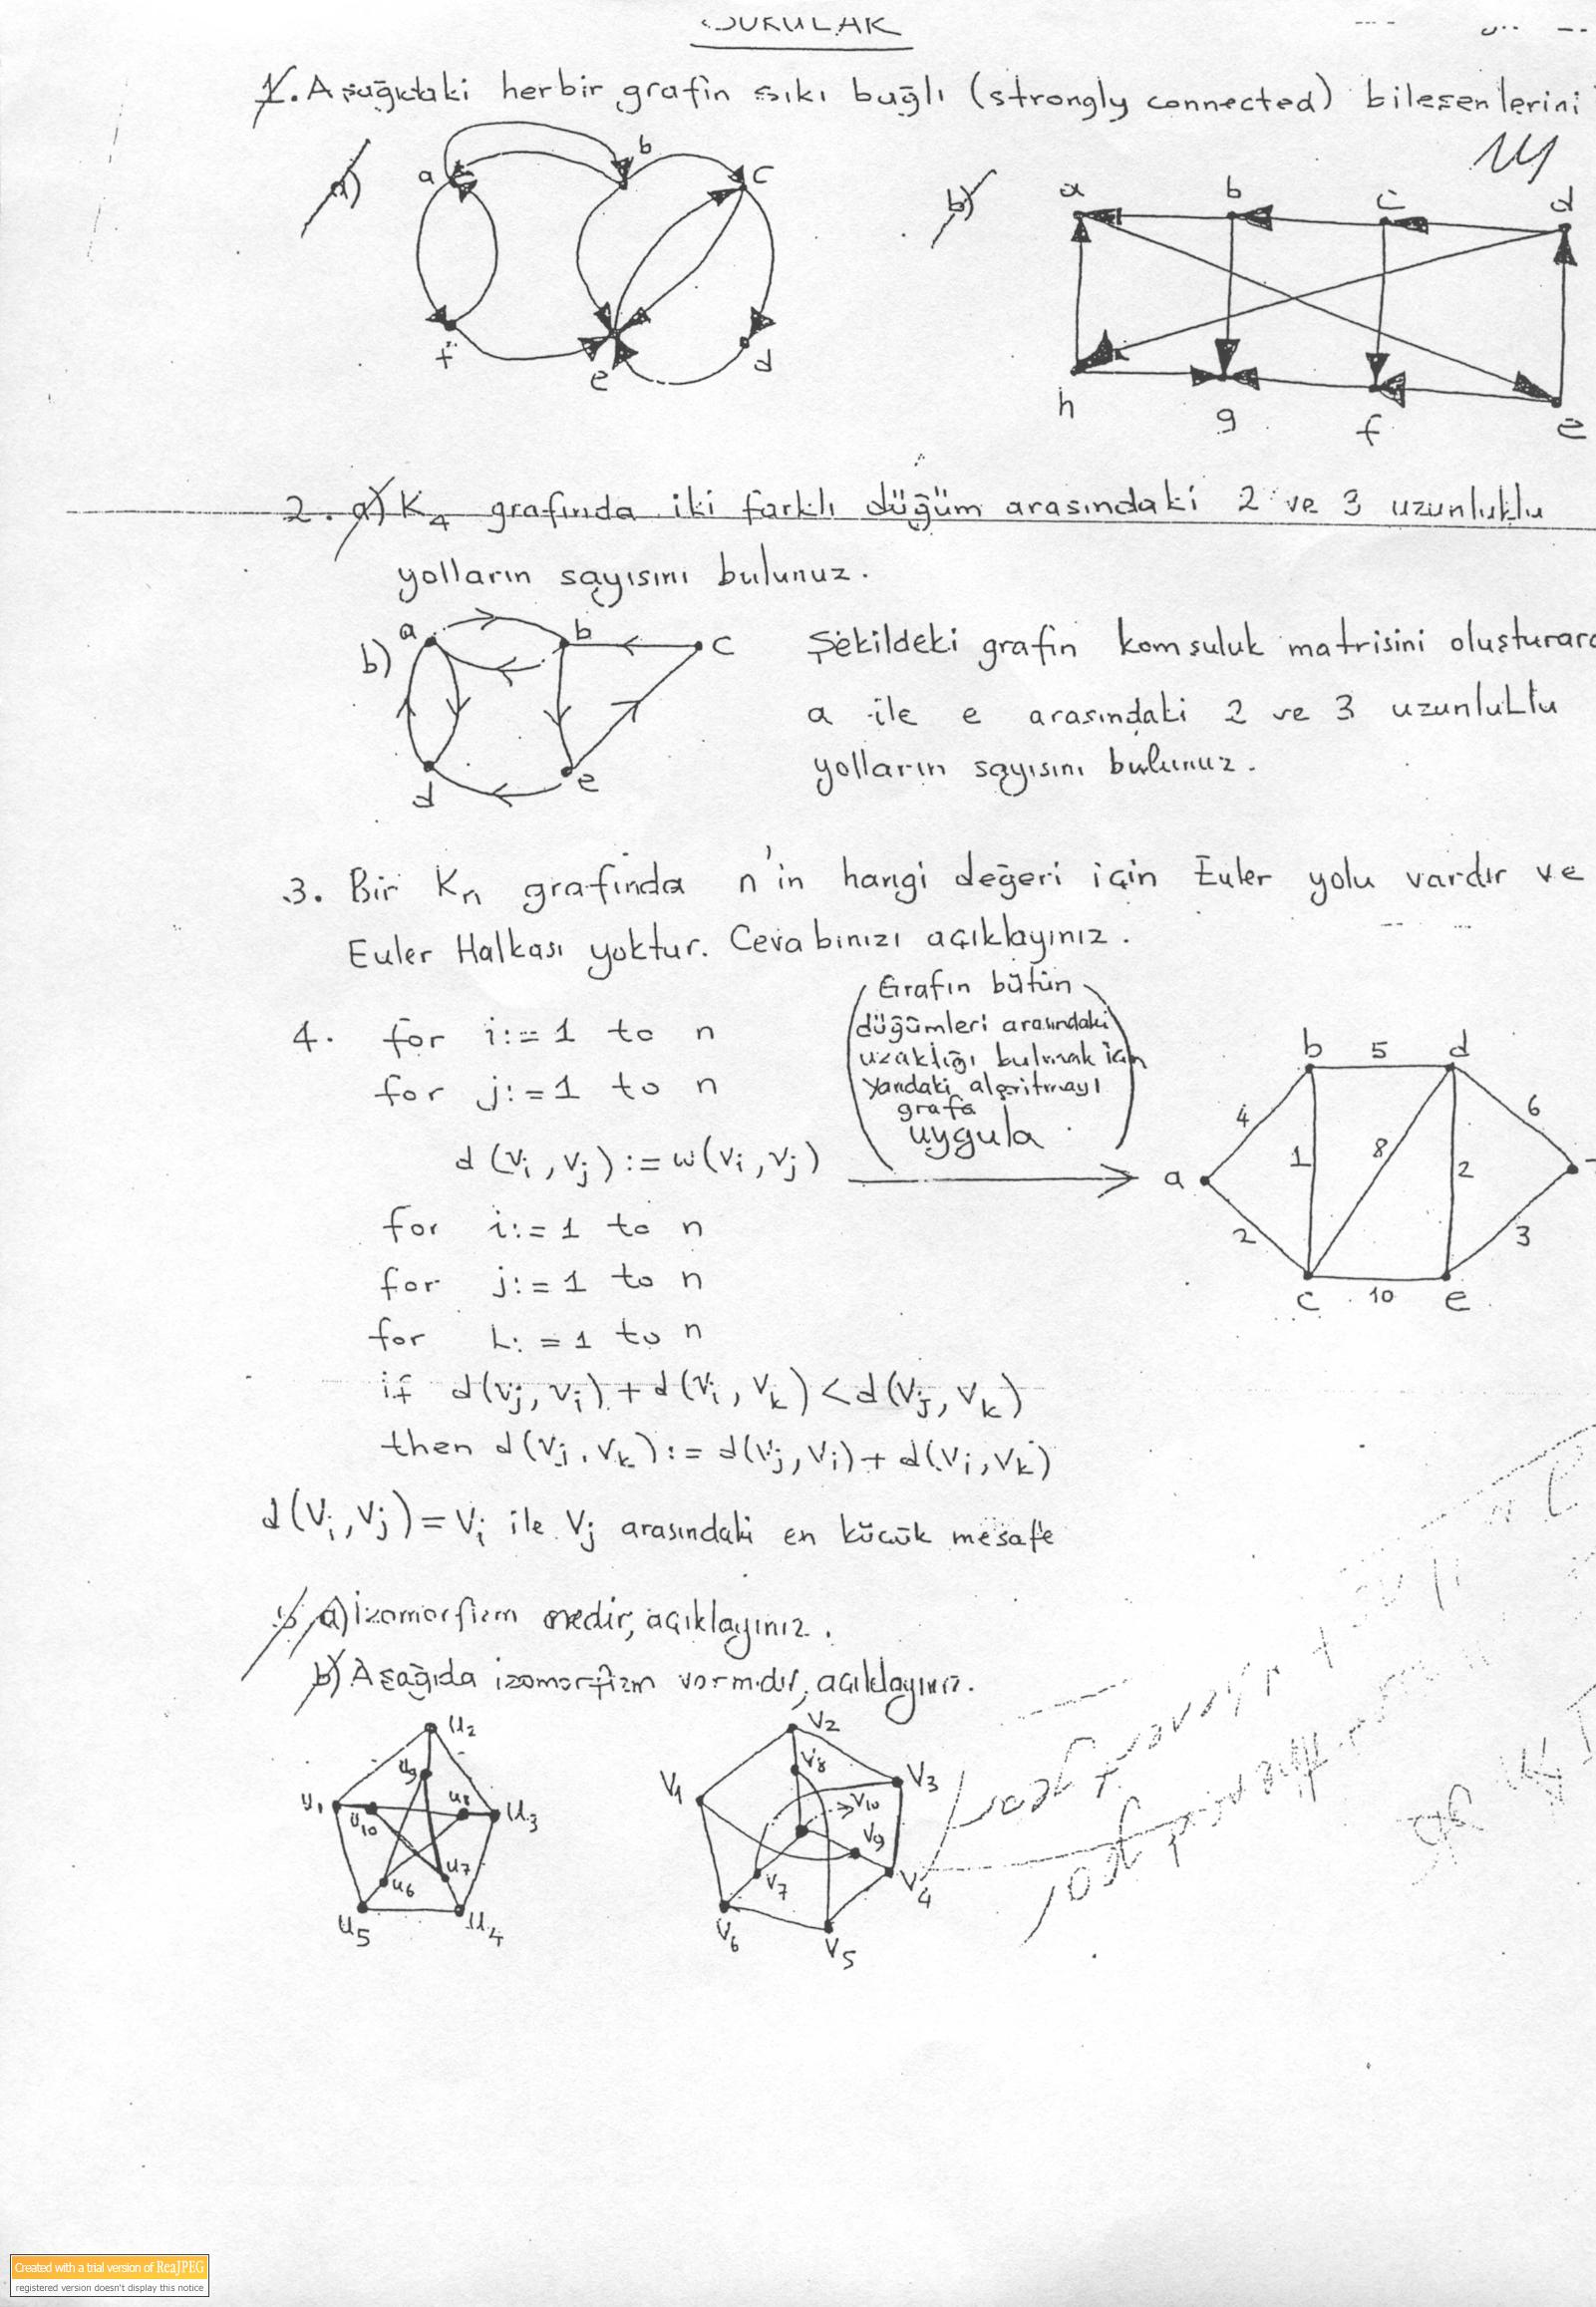 1. Aşağıdaki herbir grafın sıkı bağlı (strongly connected) bileşenlerini
a) a b c d e f
b) a b c d e f g h
2. a) K4 grafında iki farklı düğüm arasındaki 2 ve 3 uzunluklu
yolların sayısını bulunuz.
b) a b c d e
Şekildeki grafın komşuluk matrisini
a ile e arasındaki 2 ve 3 uzunluklu
yolların sayısını bulunuz.
3. Bir Kn grafında n'in hangi değeri için Euler yolu vardır ve
Euler Halkası yoktur. Cevabınızı açıklayınız.
4. for i:=1 to n
for j:=1 to n
d(vi,vj):=w(vi,vj)
for i:=1 to n
for j:=1 to n
for k:=1 to n
if d(vj,vi)+d(vi,vk)<d(vj,vk)
then d(vj,vk):=d(vj,vi)+d(vi,vk)
d(vi,vj)=vi ile vj arasındaki en küçük mesafe
(Grafın bütün
düğümleri arasındaki
uzaklığı bulmak için
yandaki algoritmayı
grafa
uygula)
b 5 d
4 1 8 2 6
a
2 3
c 10 e
a) İzomorfizm nedir, açıklayınız.
b) Aşağıda izomorfizm varmıdır, açıklayınız.
u2
u9
u1 u10 u8 u3
u7
u6
u5 u4
v2
v8
v1 v3
v10
v9
v7 v4
v6
v5
Created with a trial version of ReaJPEG
registered version doesn't display this notice